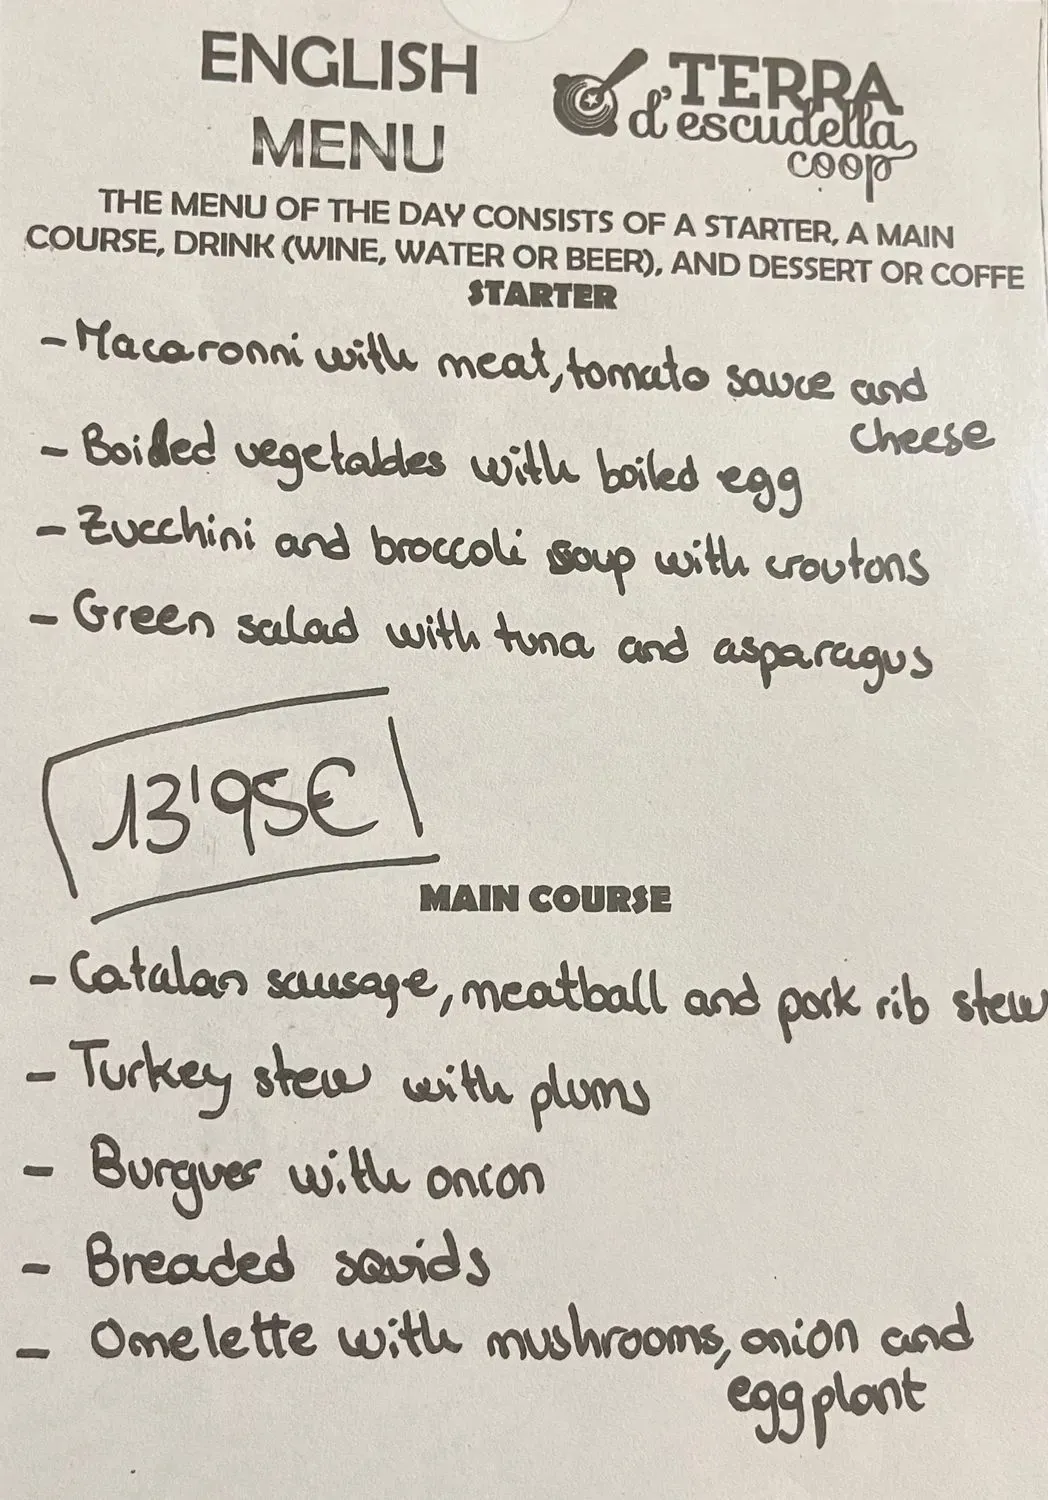 ENGLISH
MENU
TERRA
d'escudella
coop
THE MENU OF THE DAY CONSISTS OF A STARTER, A MAIN
COURSE, DRINK (WINE, WATER OR BEER), AND DESSERT OR COFFE
STARTER
- Macaronni with meat, tomato sauce and
cheese
- Boiled vegetables with boiled egg
- Zucchini and broccoli soup with croutons
- Green salad with tuna and asparagus
13'95€
MAIN COURSE
- Catalan sausage, meatball and pork rib stew
- Turkey stew with plums
- Burguer with onion
- Breaded squids
- Omelette with mushrooms, onion and
eggplant